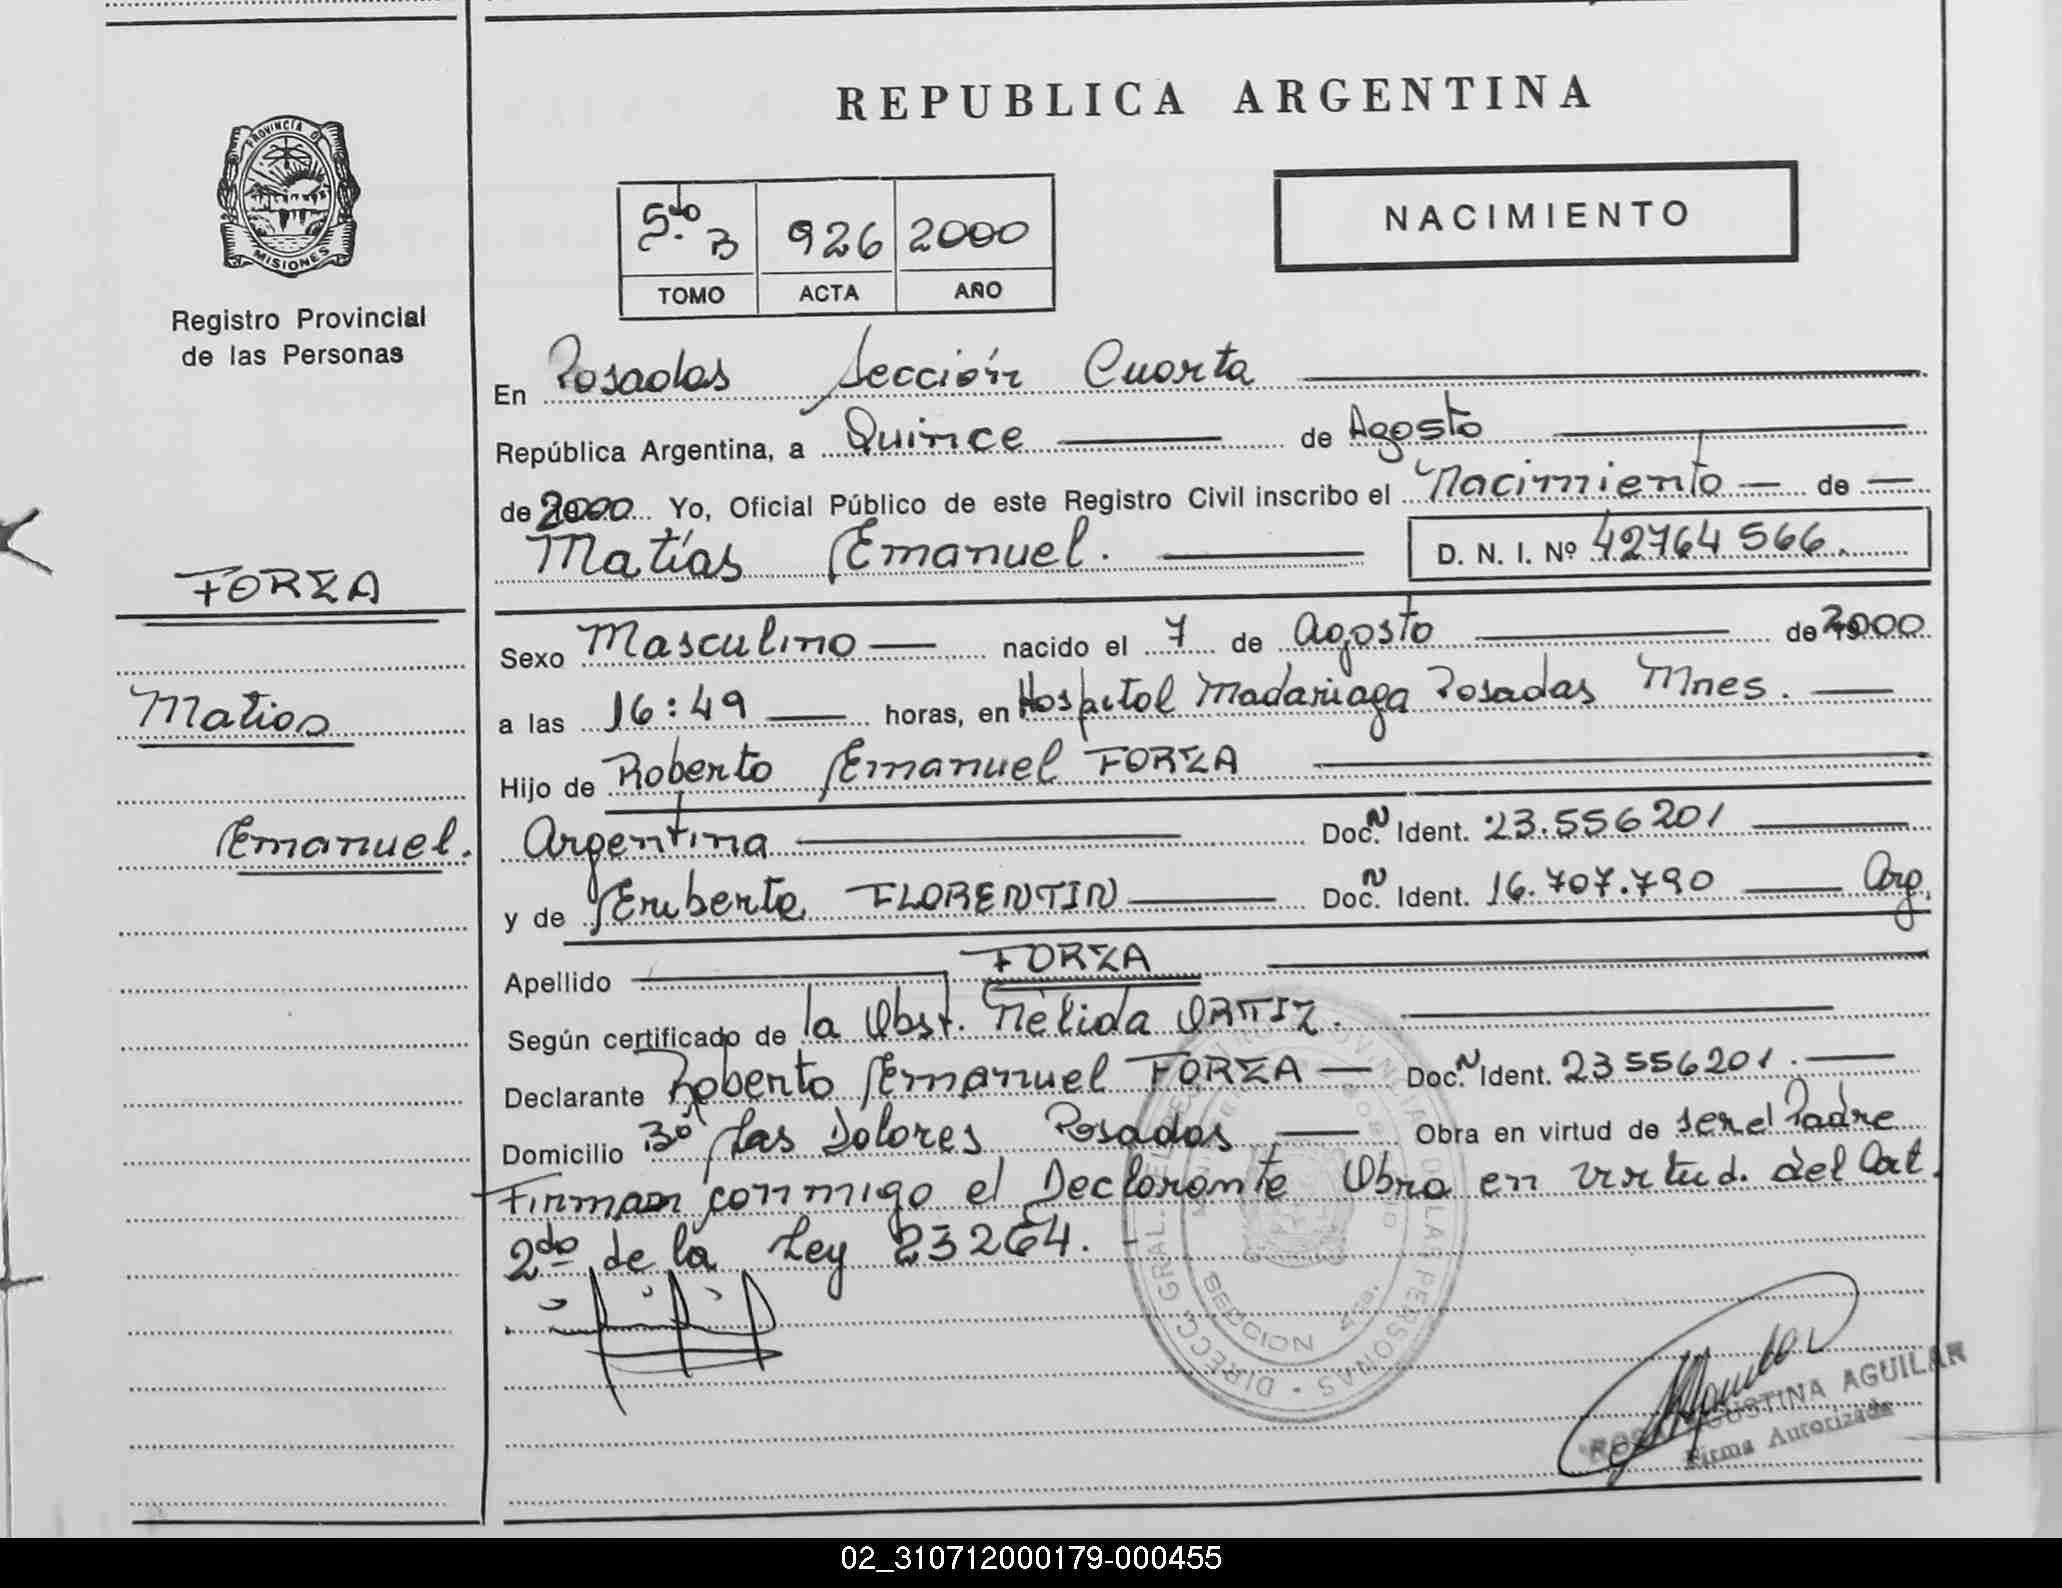 REPUBLICA ARGENTINA
PROVINCIA D
MISIONES
Registro Provincial
de las Personas
5.to B 926 2000
TOMO ACTA AÑO
NACIMIENTO
En Posadas Sección Cuarta
República Argentina, a Quince de Agosto
de 2000 Yo, Oficial Público de este Registro Civil inscribo el Nacimiento de
Matías Emanuel. D. N. I. Nº 42764566.
FORZA
Matias
Emanuel.
Sexo Masculino nacido el 7 de Agosto de 2000
a las 16:49 horas, en Hospital Madariaga Posadas Mnes.
Hijo de Roberto Emanuel FORZA
Argentina Doc. N Ident. 23.556201
y de Eriberta FLORENTIN Doc. N Ident. 16.707.790 Arg.
Apellido FORZA
Según certificado de la Obst. Nélida ORTIZ.
Declarante Roberto Emanuel FORZA Doc. N Ident. 23556201.
Domicilio Bº Las Dolores Posadas Obra en virtud de ser el Padre
Firman conmigo el Declarante Obra en virtud. del Cat.
2do de la Ley 23264.
DIRECC. GRAL. DEL REGISTRO PROVINCIAL DE LAS PERSONAS
SECCION 4ta.
ROSA AGUSTINA AGUILAR
Firma Autorizada
02_310712000179-000455